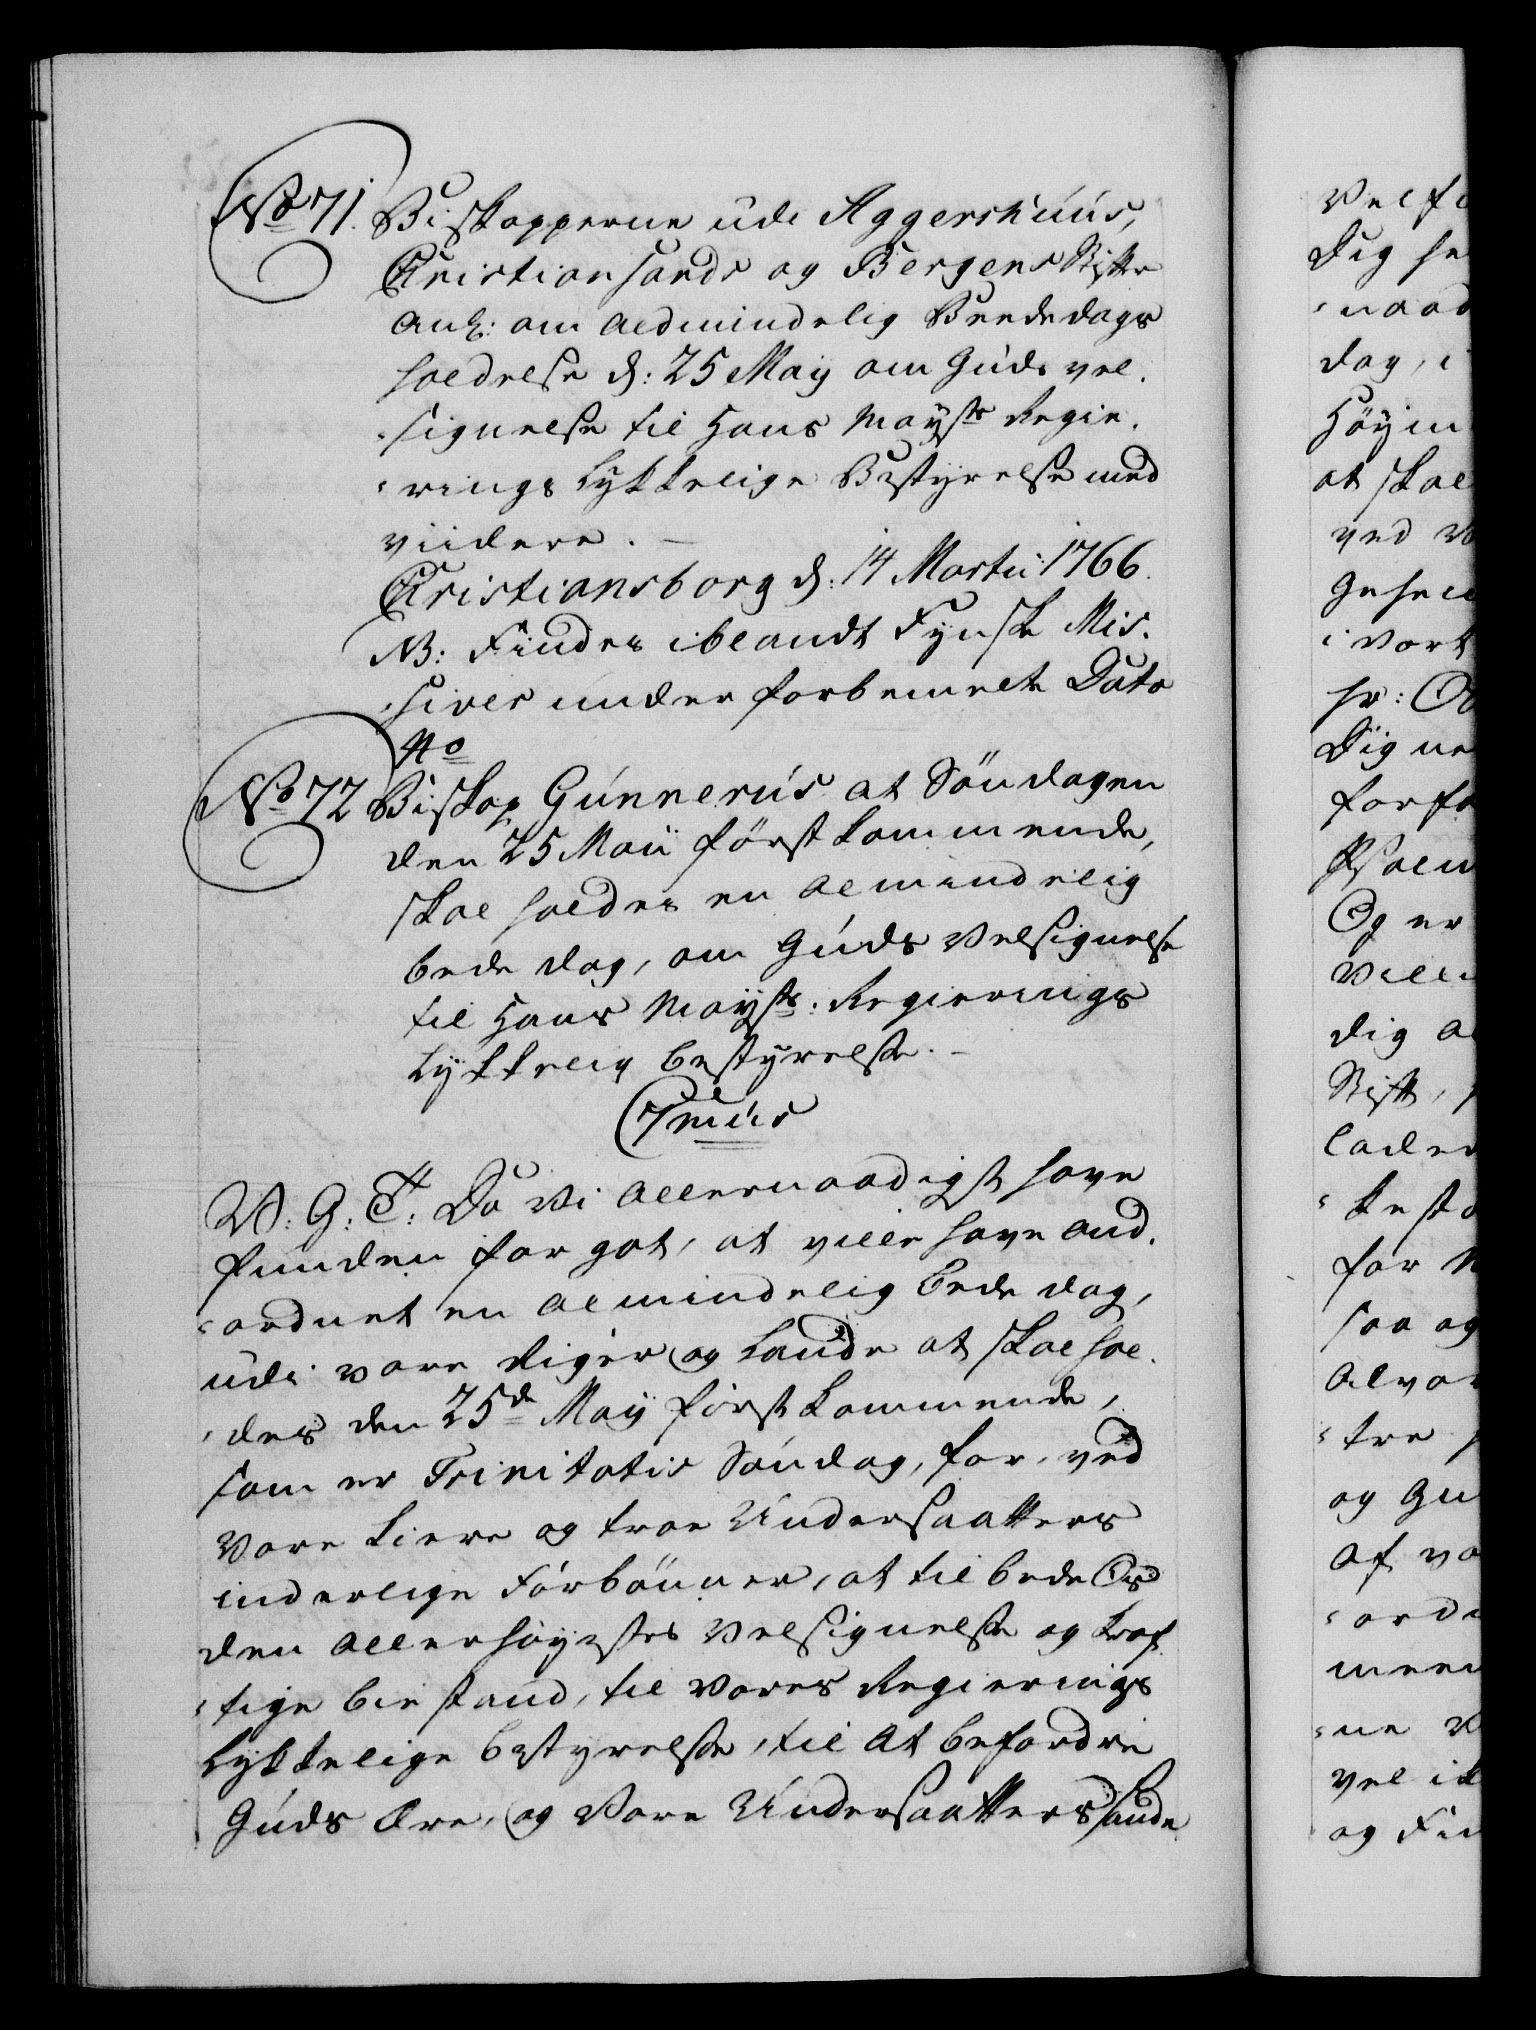 No 71. Biskopperne udi Aggershuus,
Christiansands og Bergens Stifter
Anl: om Aldmindelig Beededags
holdelse d: 25 Maij om Guds vel-
signelse til Hans Mayts Regie-
rings Lykkelige Bestyrelse med
viidere.
Christiansborg d: 14 Martii 1766.
NB: Findes iblandt Fynske Mis-
siver under forbemelte Dato
No
No 72 Biskop Gunnerus at Søndagen
den 25 Maii først kommende,
skal holdes en almindelig
bede dag, om Guds Velsignelse
til Hans Mayts: Regierings
Lykkelig bestyrelse.
V: G: T: Da Vi allernaadigst have
funden for got, at ville have and-
ordnet en almindelig bede dag,
udi vore Riger og Lande at skal hol-
des den 25de Maij først kommende,
som er Trinitatis Søndag, for, ved
Vore kiere og troe Undersaatters
inderlige Forbønner, at til bede Os
den allerhøyestes Velsignelse og kraf-
tige bistand, til Vores Regierings
Lykkelige bestyrelse, til at befordre
Guds Ære, og Vore Undersaatters sande
Velf
Dig he
naad
dag, i
Høyin
at skal
ved V
i vort
Dig ne
forfa
Psalm
Og er
Ville
dig a
Stift,
lader
for
saa og
alvor
tre
og Gu
af vo
ord
meen
ne
vel
og Fi